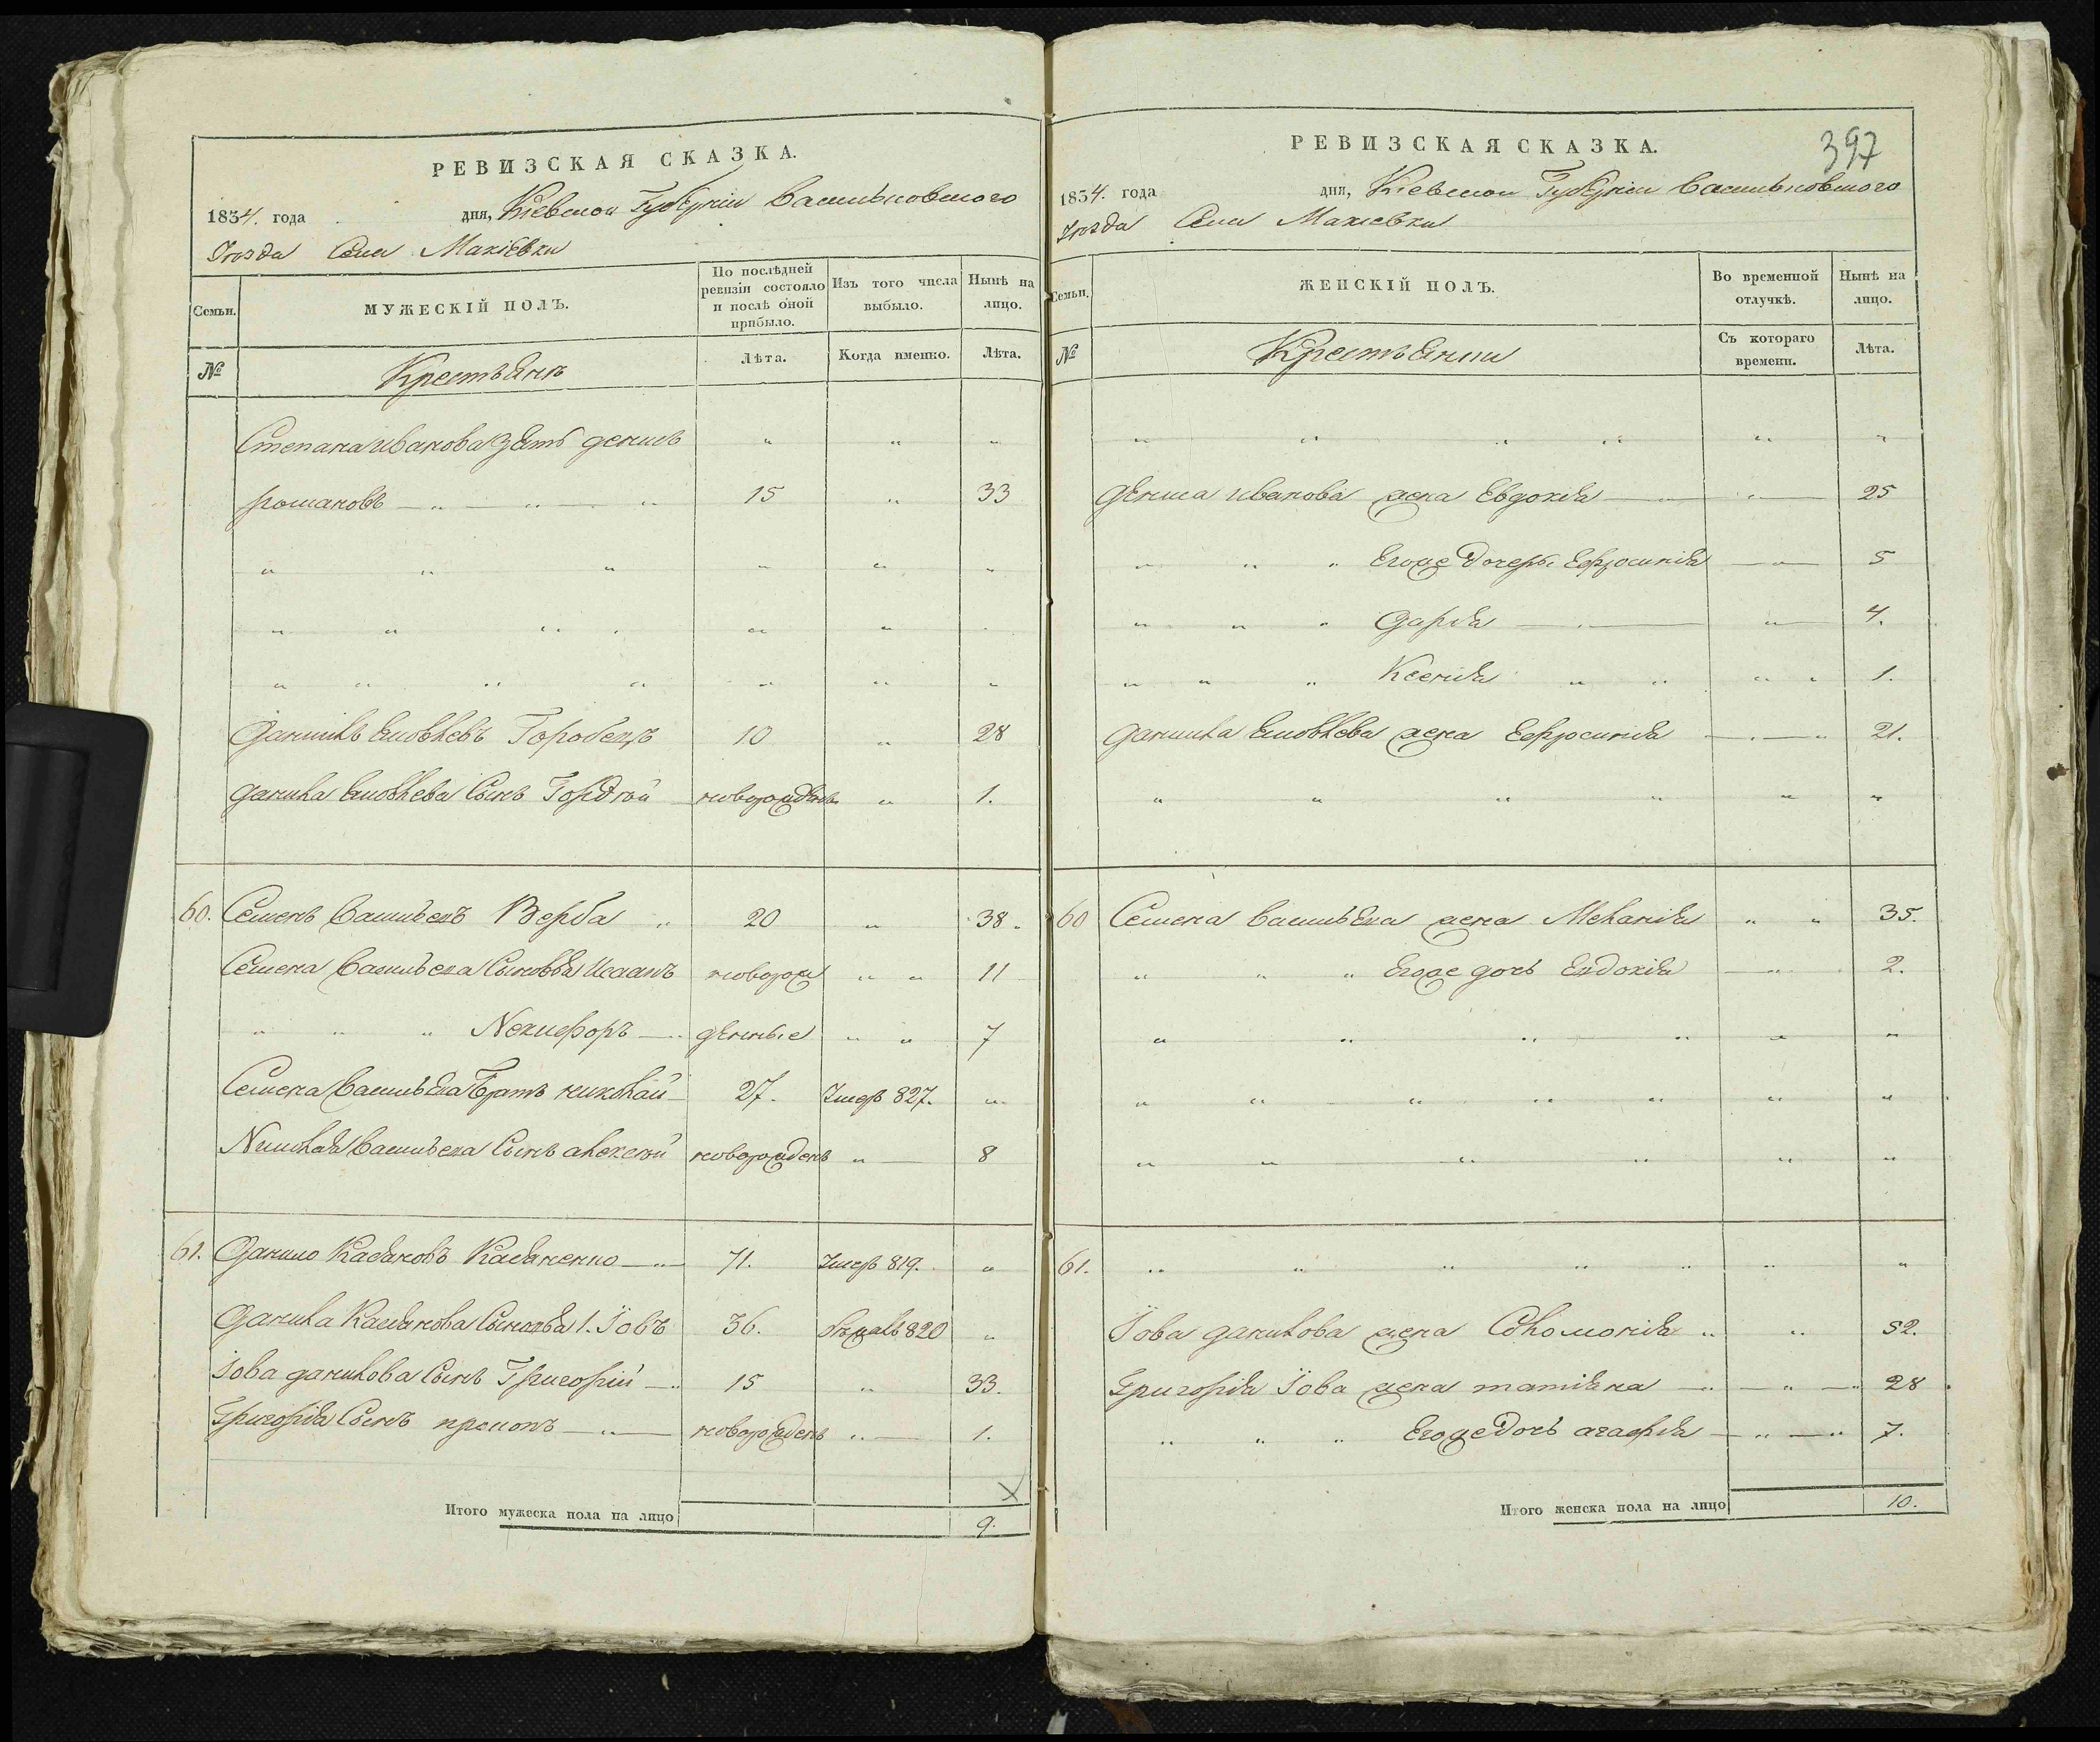 РЕВИЗСКАЯ СКАЗКА.
1834. года дня, Кіевской Губерніи Васильковского
Уѣзда Села Макіевки
Семьи. МУЖЕСКІЙ ПОЛЪ. По послѣдней ревизіи состояло и послѣ оной прибыло. Изъ того числа выбыло. Нынѣ на лицо.
№ Крестьянъ Лѣта. Когда именно. Лѣта.
Степана иванова зять денисъ
романовъ 15 33
Данилъ Яковлевъ Горобецъ 10 28
данила Яковлева Сынъ Гордѣй новорожденъ 1.
60. Семенъ Васильевъ Верба 20 38.
Семена Васильева Сыновья Исаакъ новорож 11
Никифоръ денные 7
Семена Васильева Братъ николай 27. Умеръ 827.
Николая Васильева Сынъ алексѣй новорожденъ 8
61. Данило Касьяновъ Касьяненко 71. Умеръ 819.
Данила Касьянова Сыновья 1. Іовъ 36. 820
Іова данилова Сынъ Григорій 15 33.
Григорія Сынъ прокопъ новорожденъ 1.
Итого мужеска пола на лицо 9.
РЕВИЗСКАЯ СКАЗКА. 397
1834. года дня, Кіевской Губерніи Васильковского
Уѣзда Села Макіевки
Семьи. ЖЕНСКІЙ ПОЛЪ. Во временной отлучкѣ. Нынѣ на лицо.
№ Крестьянки Съ котораго времени. Лѣта.
дениса иванова жена Евдокія 25
Егоже дочери Ефросинія 5
дарія 4.
Ксенія 1.
данила Яковлева жена Ефросинія 21.
60 Семена Васильева жена Меланія 35.
Егоже дочь Евдокія 2.
61.
Іова данилова жена Соломонія 52.
Григорія Іова жена татіяна 28
Егоже дочь агафія 7.
Итого женска пола на лицо 10.